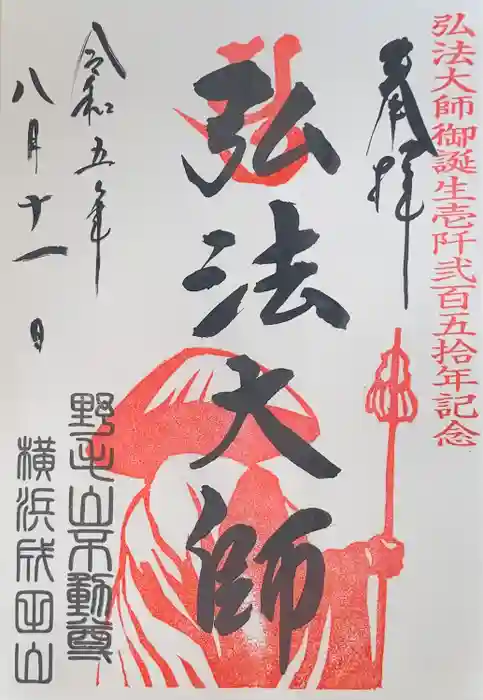 弘法大師御誕生壱阡弐百五拾年記念
奉拝
弘法大師
令和五年
八月十一日
野毛山不動尊
横浜成田山